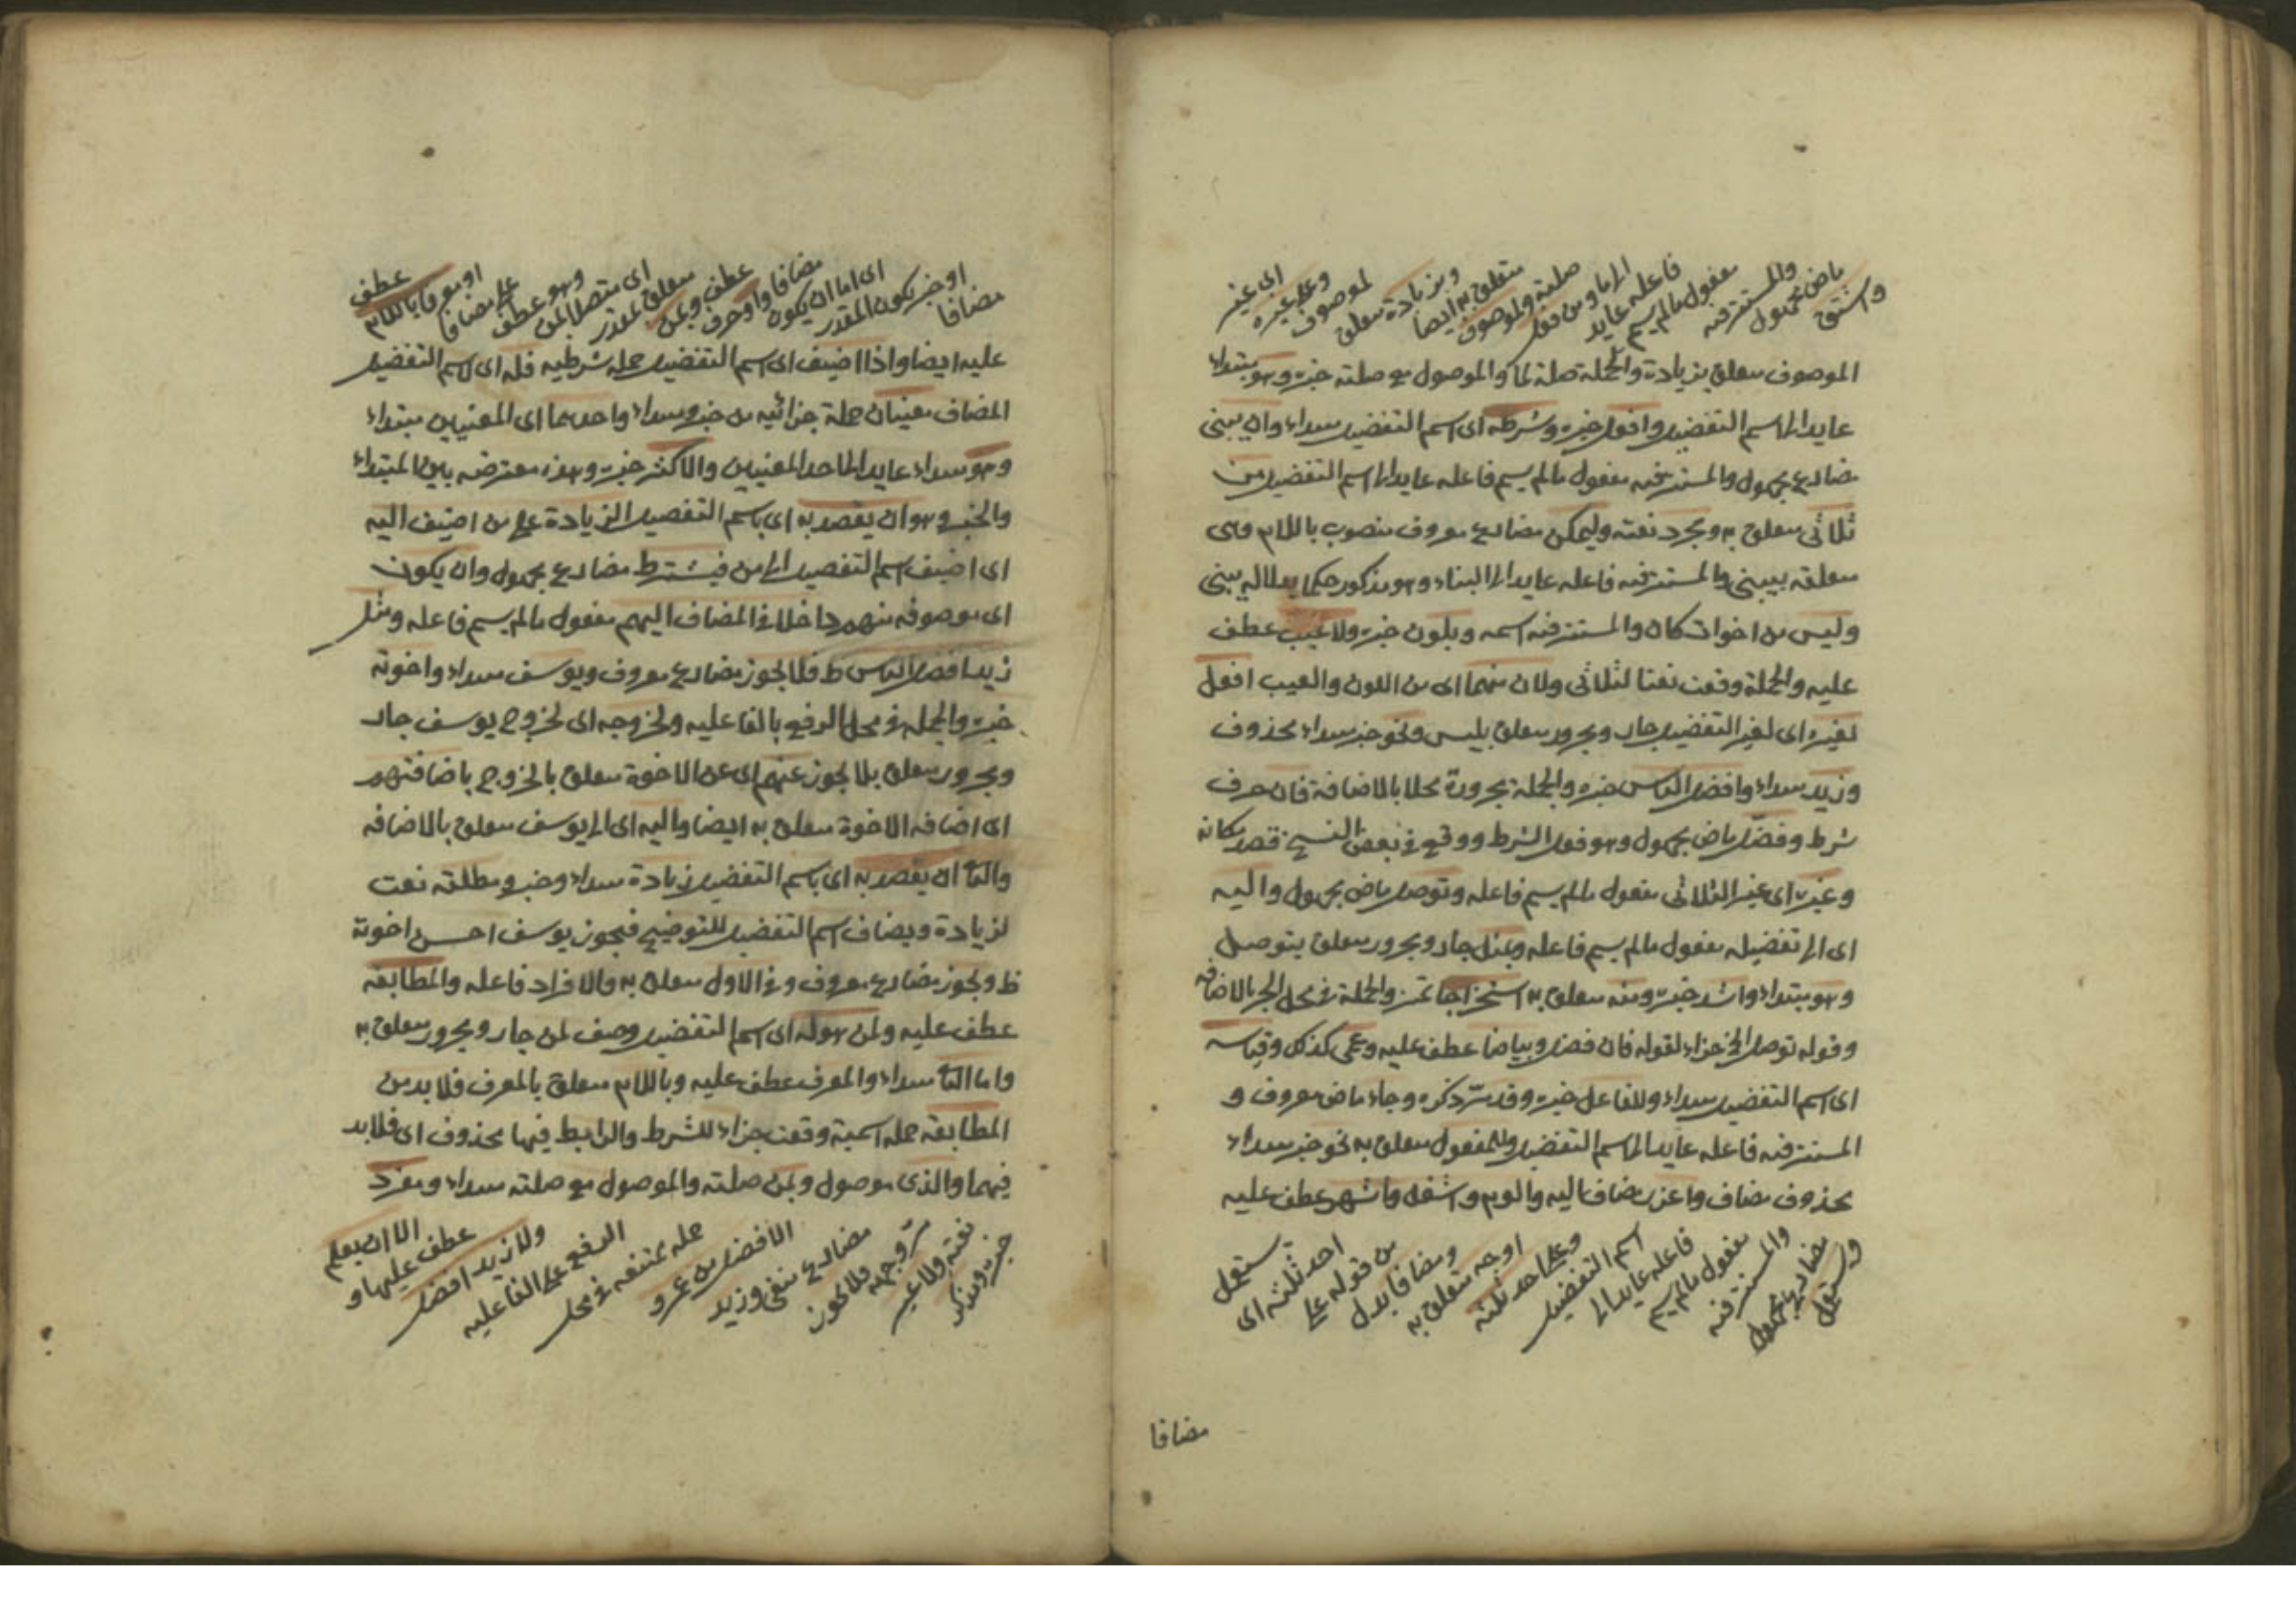 واشتق
ماض مجهول
والمستتر فيه
مفعول مالم يسم
فاعله عايد
الى ما ومن فعل
صلته ولموصوف
متعلق به ايضا
وبزيادة متعلق
لموصوف
وعلى غيره
اى غير
الموصوف متعلق بزيادة والجملة صلة لما والموصول مع صلته خبره وهو مبتداء
عايد الى اسم التفضيل وافعل خبره وشرطه اى اسم التفضيل مبتداء وان يبنى
مضارع مجهول والمستتر فيه مفعول مالم يسم فاعله عايد الى اسم التفضيل من
ثلاثى متعلق به ومجرد نعته وليمكن مضارع معروف منصوب باللام وهى
متعلقة بيبنى والمستتر فيه فاعله عايد الى البناء وهو مذكور حكما بدلالة يبنى
وليس من اخوات كان والمستتر فيه اسمه وبلون خبره ولا عيب عطف
عليه والجملة وقعت نعتا لثلاثى ولان منهما اى من اللون والعيب افعل
لغيره اى لغير التفضيل جار ومجرور متعلق بليس ونحو خبر مبتداء محذوف
وزيد مبتداء وافضل الناس خبره والجملة مجرورة محلا بالاضافة فان حرف
شرط وقصد ماض مجهول وهو فعل الشرط ووقع فى بعض النسخ قصد مكانه
وغيره اى غير الثلاثى مفعول مالم يسم فاعله وتوصل ماض مجهول واليه
اى الى تفضيله مفعول مالم يسم فاعله وبمثل جار ومجرور متعلق بتوصل
وهو مبتداء واشد خبره ومنه متعلق به استخراجا تميز والجملة فى محل الجر بالاضافة
وقوله توصل الخ جزاء لقوله فان قصد وبياضا عطف عليه وعمى كذلك وقياسه
اى اسم التفضيل مبتداء وللفاعل خبره وقد مر ذكره وجاء ماض معروف و
المستتر فيه فاعله عايد الى اسم التفضيل وللمفعول متعلق به نحو خبر مبتداء
محذوف مضاف واعذر مضاف اليه والوم واشغل واشهر عطف عليه
ويستعمل
مضارع مجهول
والمستتر فيه
مفعول مالم يسم
فاعله عايد الى
اسم التفضيل
وعلى احد ثلثة
اوجه متعلق به
ومضافا بدل
من قوله على
احد ثلثة اى
يستعمل
مضافا
مضافا
او خبر يكون المقدر
اى اما ان يكون
مضافا واو حرف
عطف وبمن
متعلق لمقدر
اى متصلا بمن
وهو عطف
على مضافا
او معرفا باللام
عطف
عليه ايضا واذا اضيف اى اسم التفضيل جملة شرطيه فله اى لاسم التفضيل
المضاف معنيان جملة جزائيه من خبر ومبتداء واحدهما اى المعنيين مبتداء
وهو مبتداء عايد الى احد المعنيين والاكثر خبره وهذه معترضه بين المبتداء
والخبر وهو ان يقصد به اى باسم التفضيل الزيادة على من اضيف اليه
اى اضيف اسم التفضيل الى من فيشترط مضارع مجهول وان يكون
اى موصوفه منهم داخلا فى المضاف اليهم مفعول مالم يسم فاعله ومثل
زيد افضل الناس ط فلا يجوز مضارع معروف ويوسف مبتداء واخوته
خبره والجملة فى محل الرفع بالفاعليه ولخروجه اى لخروج يوسف جار
ومجرور متعلق بلا يجوز عنهم اى عن الاخوة متعلق بالخروج باضافتهم
اى اضافه الاخوة متعلق به ايضا واليه اى الى يوسف متعلق بالاضافه
والثا ان يقصد به اى باسم التفضيل زيادة مبتداء وخبر ومطلقه نعت
لزيادة ويضاف اسم التفضيل للتوضيح فيجوز يوسف احسن اخوته
ظ ويجوز مضارع معروف وفى الاول متعلق به والافراد فاعله والمطابقه
عطف عليه ولمن هو له اى اسم التفضيل وصف لمن جار ومجرور متعلق به
واما الثا مبتداء والمعرف عطف عليه وباللام متعلق بالمعرف فلا بد من
المطابقه جملة اسمية وقعت جزاء للشرط والرابط فيها محذوف اى فلا بد
فيهما والذى موصول وبمن صلته والموصول مع صلته مبتداء ومفرد
خبره ومذكر
نعته ولا غير
فلا يجوز
مضارع منفى وزيد
الافضل من عمرو
جملة ممتنعه فى محل
الرفع على الفاعليه
ولا زيد افضل
عطف عليها و
الا ان يعلم